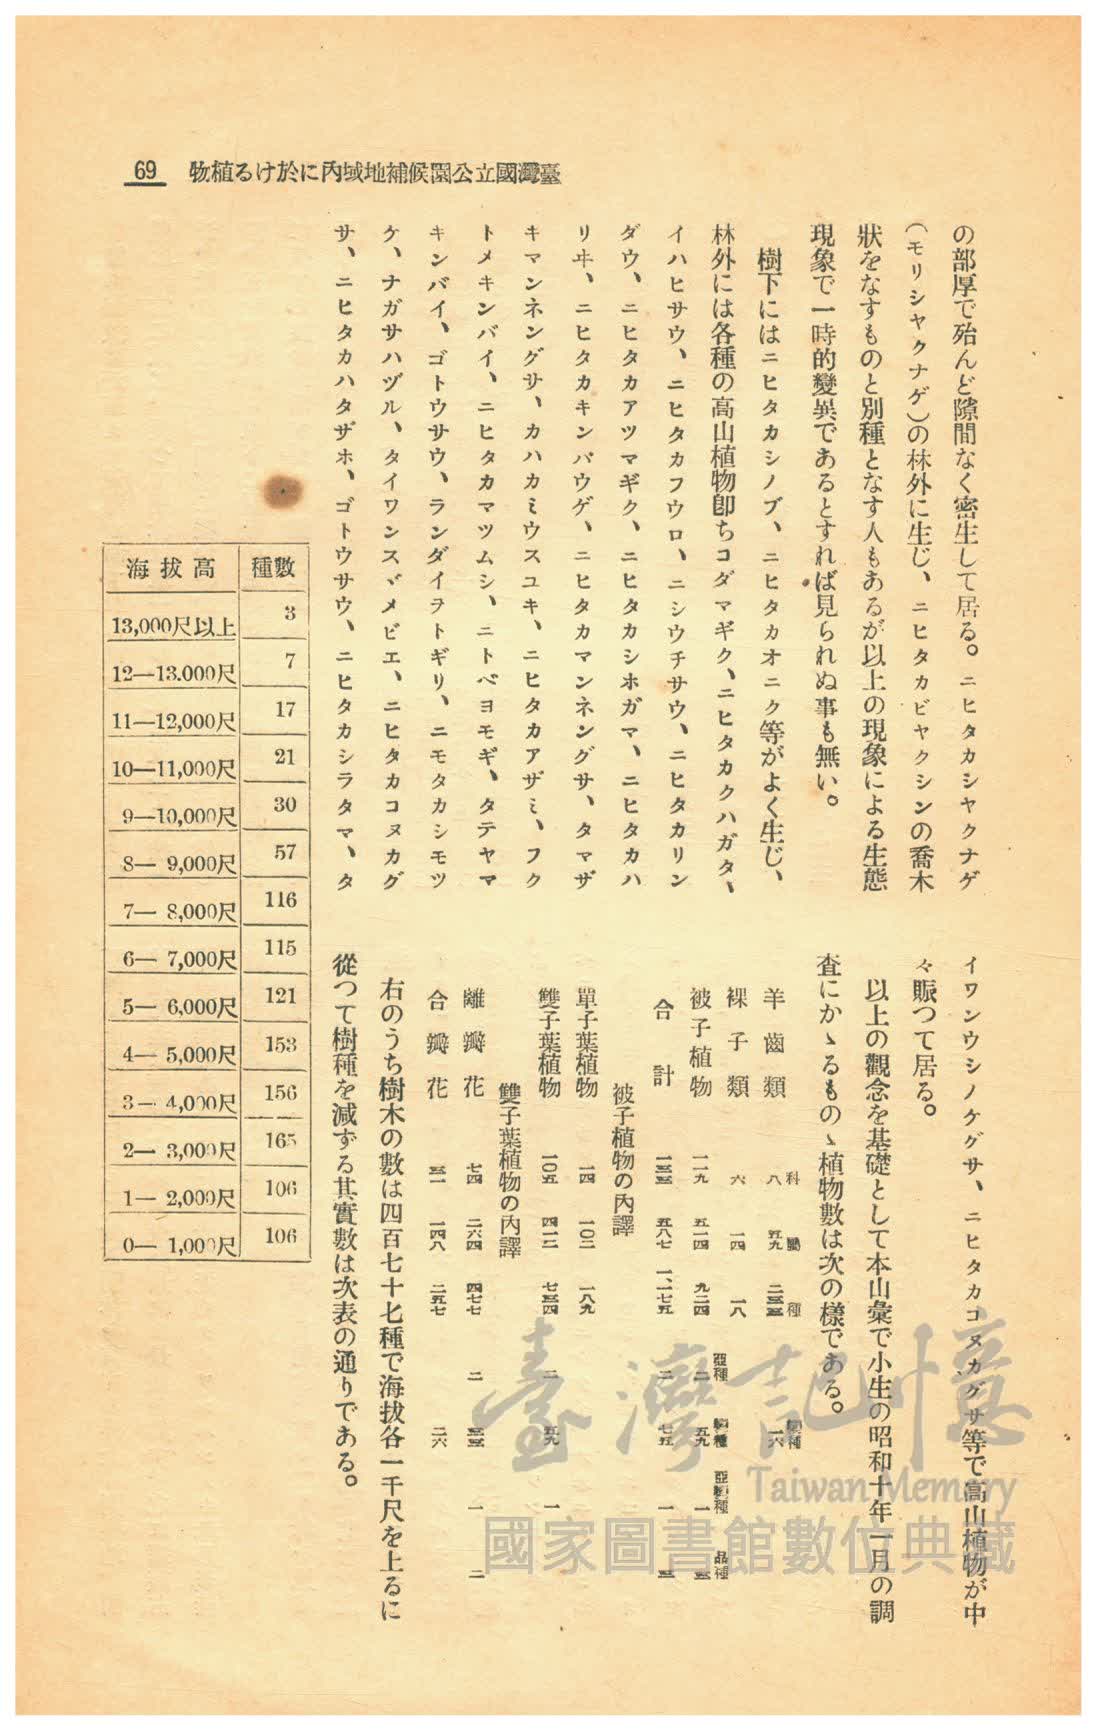 臺灣國立公園候補地域內に於ける植物 69
の部厚で殆んど隙間なく密生して居る。ニヒタカシヤクナゲ
(モリシヤクナゲ)の林外に生じ、ニヒタカビヤクシンの喬木
狀をなすものと別種となす人もあるが以上の現象による生態
現象で一時的變異であるとすれば見られぬ事も無い。
樹下にはニヒタカシノブ、ニヒタカオニク等がよく生じ、
林外には各種の高山植物卽ちコダマギク、ニヒタカクハガタ、
イハヒサウ、ニヒタカフウロ、ニシウチサウ、ニヒタカリン
ダウ、ニヒタカアツマギク、ニヒタカシホガマ、ニヒタカハ
リヰ、ニヒタカキンパウゲ、ニヒタカマンネングサ、タマザ
キマンネングサ、カハカミウスユキ、ニヒタカアザミ、フク
トメキンバイ、ニヒタカマツムシ、ニトベヨモギ、タテヤマ
キンバイ、ゴトウサウ、ランダイヲトギリ、ニモタカシモツ
ケ、ナガサハヅル、タイワンスヾメビエ、ニヒタカコヌカグ
サ、ニヒタカハタザホ、ゴトウサウ、ニヒタカシラタマ、タ
イワンウシノケグサ、ニヒタカコヌカグサ等で高山植物が中
々賑つて居る。
以上の觀念を基礎として本山彙で小生の昭和十年一月の調
査にかゝるものゝ植物數は次の樣である。
科 屬 種 亞種 變種 亞變種 品種
羊齒類 八 五九 二三三 一六
裸子類 六 一四 一八
被子植物 一一九 五一四 九二四 二 五九 一 三
合計 一三三 五八七 一、一七五 二 七五 一 三
被子植物の內譯
單子葉植物 一四 一〇二 一八九
雙子葉植物 一〇五 四一二 七三四 二 五九 一
雙子葉植物の內譯
離瓣花 七四 二六四 四七七 二 三三 一 二
合瓣花 三一 一四八 二五七 二六
右のうち樹木の數は四百七十七種で海拔各一千尺を上るに
從つて樹種を減ずる其實數は次表の通りである。
海拔高 種數
13,000尺以上 3
12—13.000尺 7
11—12,000尺 17
10—11,000尺 21
9—10,000尺 30
8— 9,000尺 57
7— 8,000尺 116
6— 7,000尺 115
5— 6,000尺 121
4— 5,000尺 153
3— 4,000尺 156
2— 3,000尺 165
1— 2,000尺 106
0— 1,000尺 106
臺灣記憶
Taiwan Memory
國家圖書館數位典藏